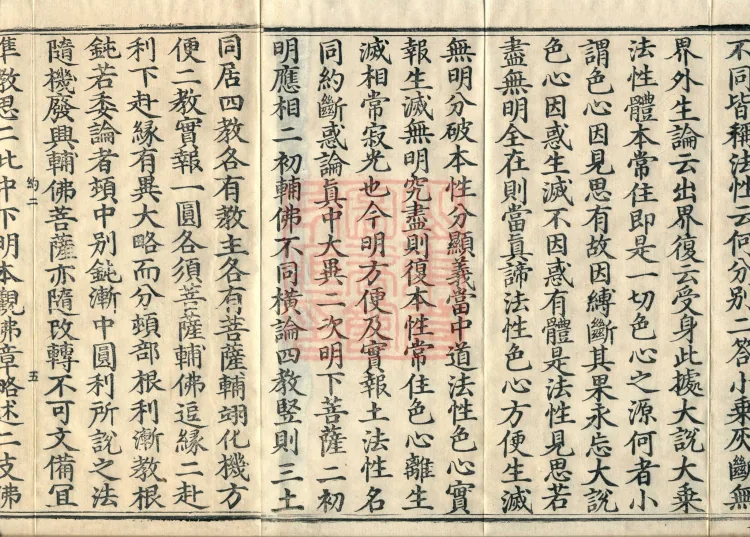 不同皆稱法性云何分別二答小乘灰斷無
界外生論云出界復云受身此據大說大乘
法性體本常住即是一切色心之源何者小
謂色心因見思有故因縛斷其果永忘大說
色心因惑生滅不因惑有體是法性見思若
盡無明全在則當真諦法性色心方便生滅
無明分破本性分顯義當中道法性色心實
報生滅無明究盡則復本性常住色心離生
滅相常寂光也今明方便及實報土法性名
同約斷惑論真中大異二次明下菩薩二初
明應相二初輔佛不同橫論四教竪則三土
同居四教各有教主各有菩薩輔翊化機方
便二教實報一圓各須菩薩輔佛逗緣二赴
利下赴緣有異大略而分頓部根利漸教根
鈍若委論者頓中別鈍漸中圓利所說之法
隨機發興輔佛菩薩亦隨改轉不可文備宜
約二
五
準教思二此中下明本觀佛章略述二支佛